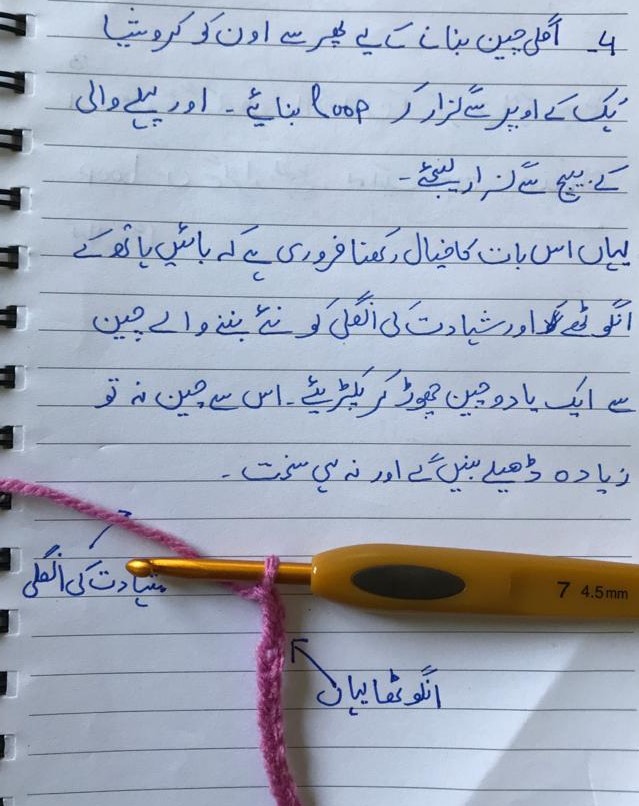 4۔ اگلی چین بنانے کے لیے پھر سے اون کو کروشیا
ہُک کے اوپر سے گزار کر loop بنائیے۔ اور پہلے والی
کے بیچ سے گزار لیجئے۔
یہاں اس بات کا خیال رکھنا ضروری ہے کہ بائیں ہاتھ کے
انگوٹھے اور شہادت کی انگلی کو نئے بننے والے چین
سے ایک یا دو چین چھوڑ کر پکڑیئے۔ اس سے چین نہ تو
زیادہ ڈھیلے بنیں گے اور نہ ہی سخت۔
شہادت کی انگلی
7 4.5mm
انگوٹھا یہاں